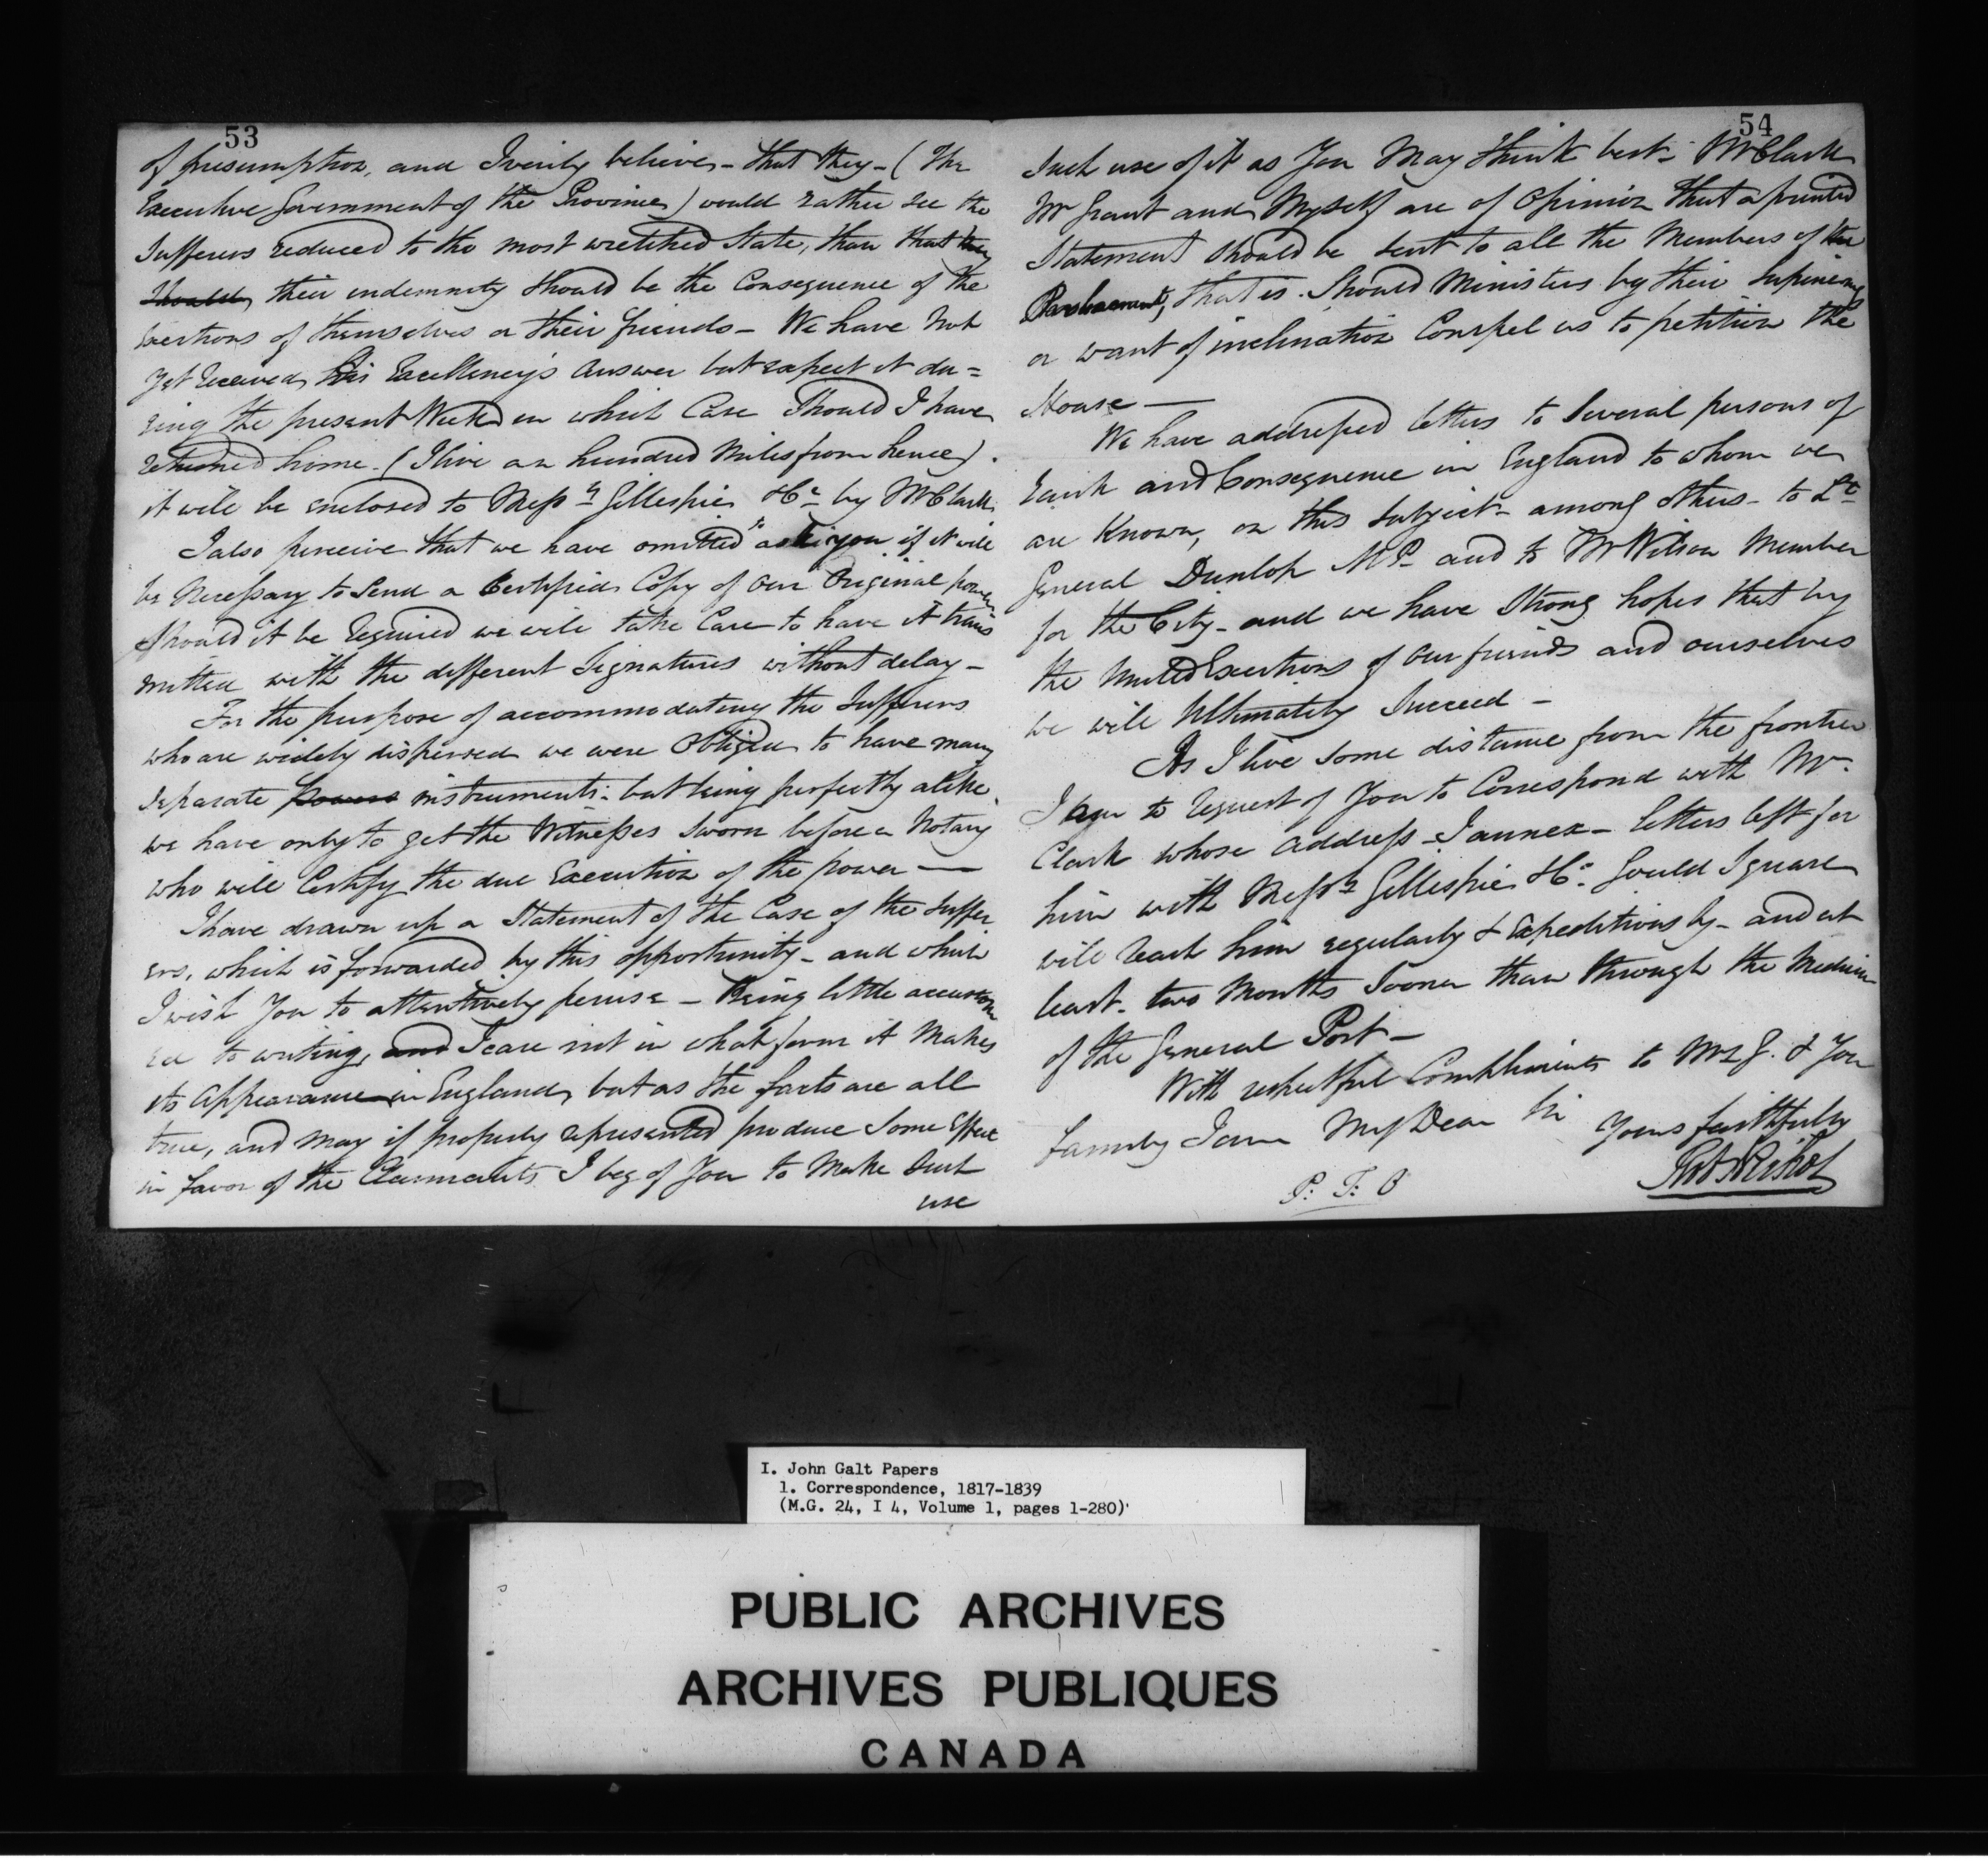 53
of presumption, and I verily believe - that they - (The
Executive Government of the Province) would rather see the
Sufferers reduced to the most wretched State, than that they
should their indemnity should be the Consequence of the
exertions of themselves or their friends - We have not
yet received his Excellency's answer but expect it du=
ring the present Week in which Case Should I have
returned home - (I live an hundred Miles from hence).
it will be enclosed to Messrs Gillespie & Co by Mr Clark
I also perceive that we have omitted to ask you if it will
be Necessary to Send a Certified Copy of our Original power
Should it be required we will take Care to have it trans
mitted with the different Signatures without delay -
For the purpose of accommodating the Sufferers
who are widely dispersed we were obliged to have many
separate powers instruments - but being perfectly alike
we have only to get the Witnesses Sworn before a Notary
who will Certify the due Execution of the power —
I have drawn up a Statement of the Case of the Suffer
ers, which is forwarded by this opportunity - and which
I wish You to attentively peruse - Being little accustom
ed to writing, and I care not in what form it Makes
its appearance in England, but as the facts are all
true, and may if properly represented produce Some Effect
in favor of the Claimants I beg of You to Make Such
use
54
Such use of it as You May think best - Mr Clark
Mr Grant and Myself are of Opinion that a printed
Statement Should be Sent to all the Members of the
Parliament, that is. Should Ministers by their Supineness
or want of inclination Compel us to petition the
House —
We have addressed letters to Several persons of
rank and Consequence in England to whom we
are Known, on this Subject - among others - to Lt
General Dunlop M.P. and to Mr Wilson Member
for the City - and we have Strong hopes that by
the United Exertions of our friends and ourselves
we will Ultimately Succeed -
As I live Some distance from the frontier
I am to request of You to Correspond with Mr
Clark whose address I annex - letters left for
him with Messrs Gillespie & Co Gould Square
will reach him regularly & Expeditiously - and at
least - two Months Sooner than through the Medium
of the General Post -
With respectful Compliments to Mrs G. & Your
family I am My Dear Sir Yours faithfully
Robt Nichol
P: T: O
I. John Galt Papers
1. Correspondence, 1817-1839
(M.G. 24, I 4, Volume 1, pages 1-280)
PUBLIC ARCHIVES
ARCHIVES PUBLIQUES
CANADA